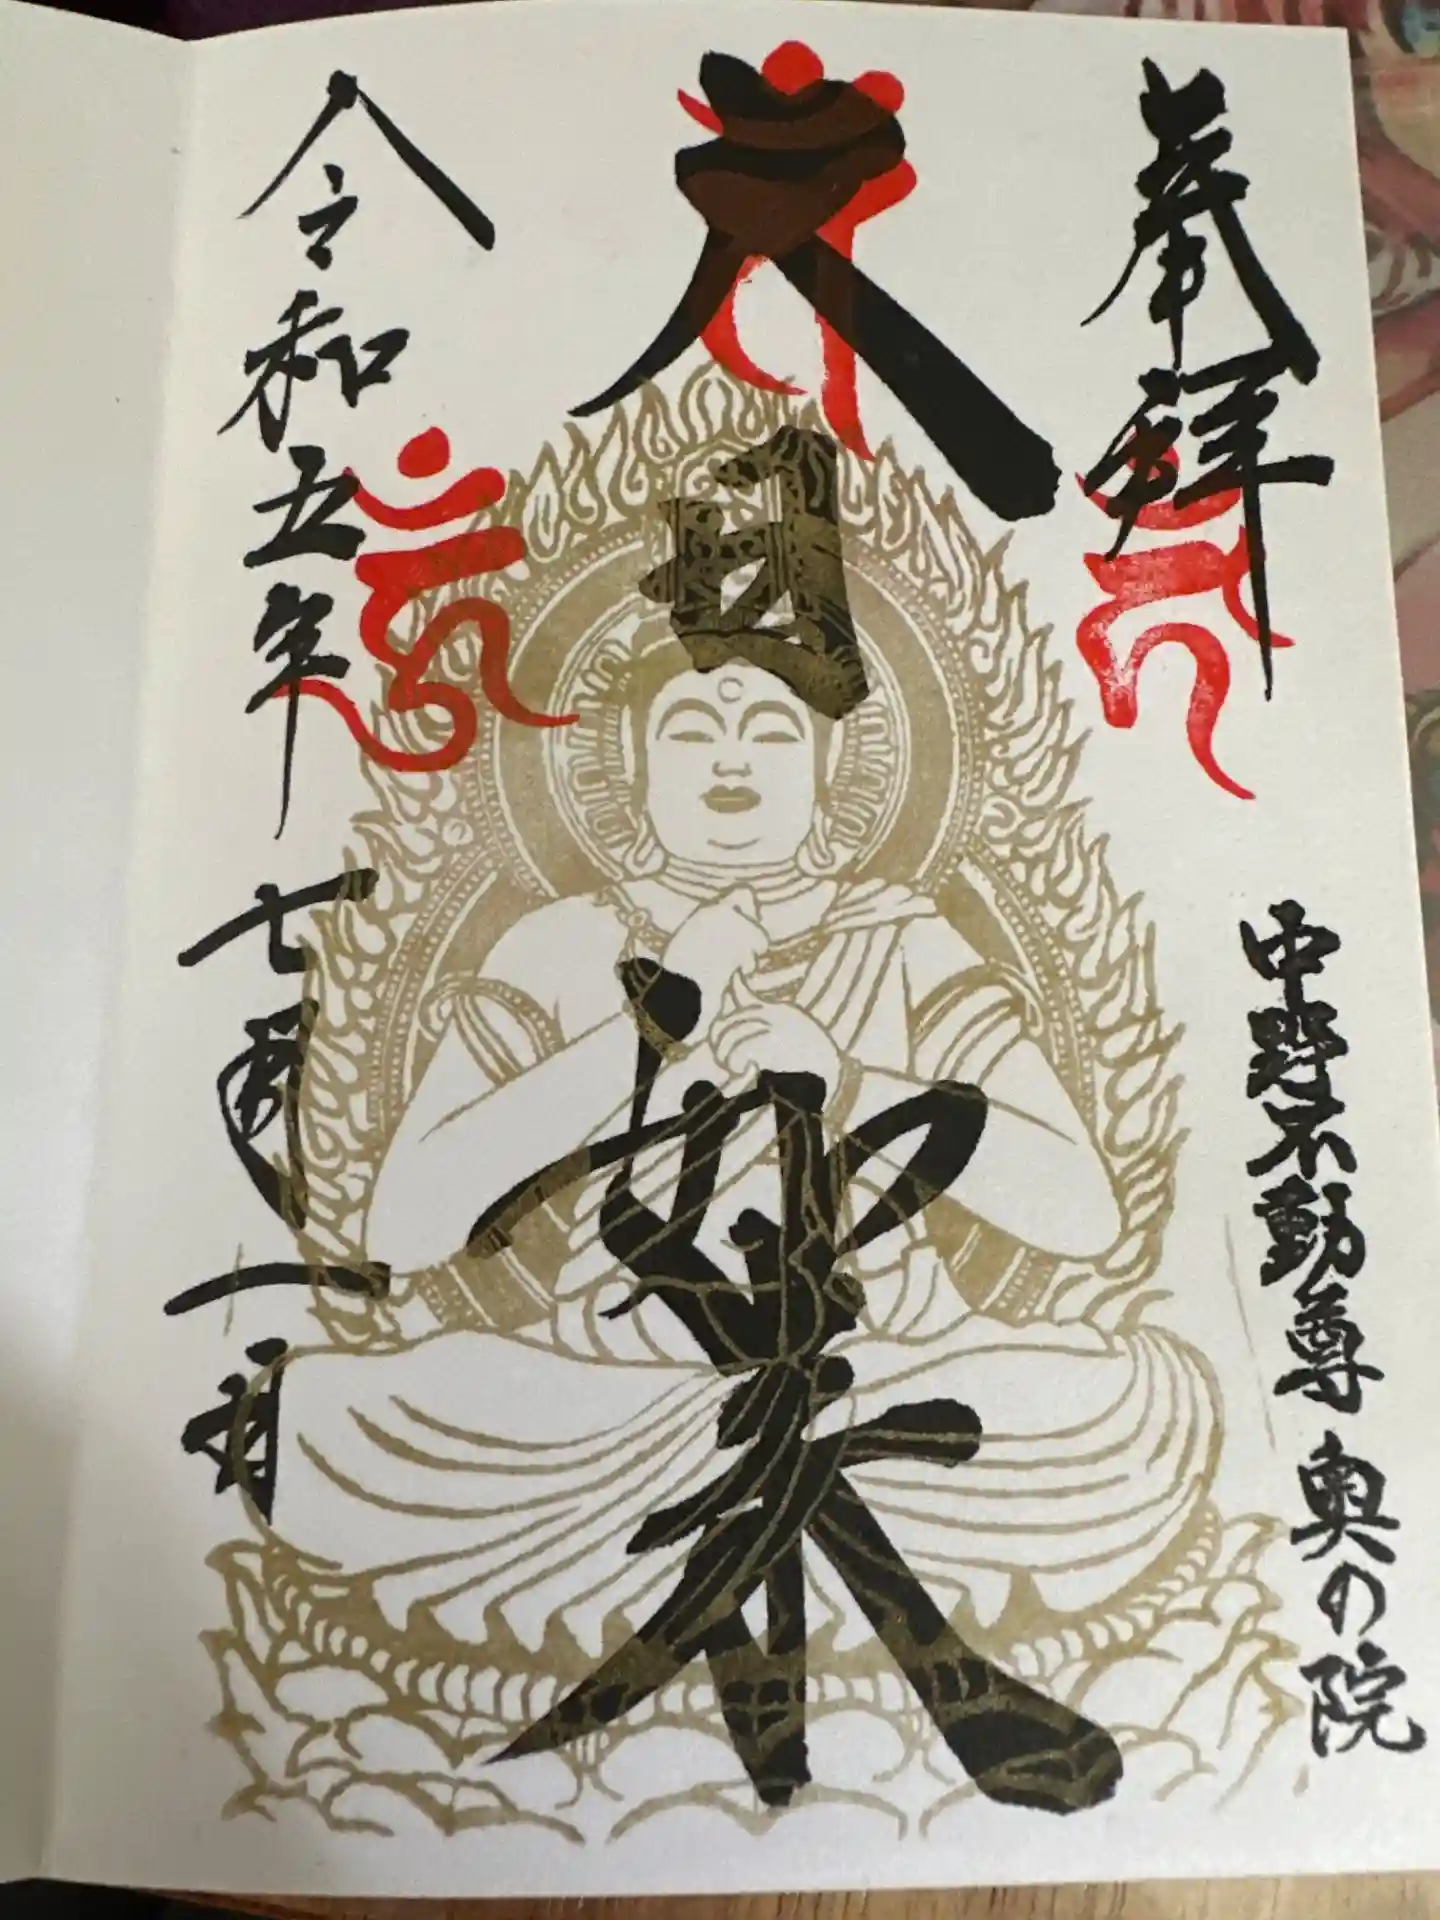 奉拝
中野不動尊 奥の院
大日如来
令和五年七月一日